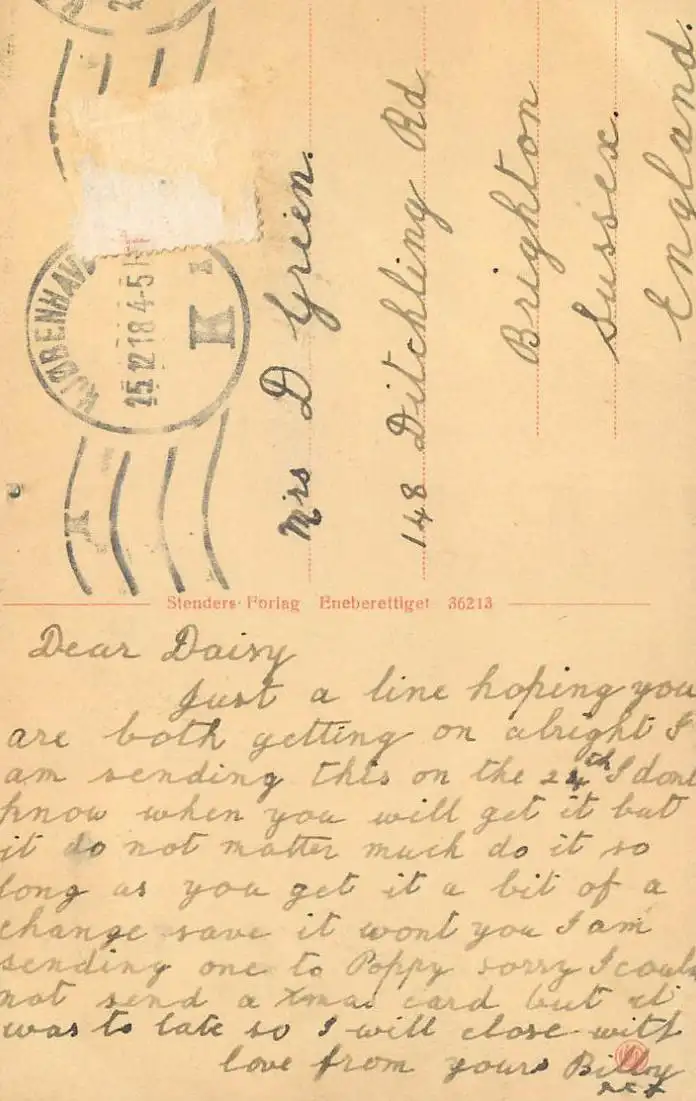 KJØBENHAV
25.12.18 4-5
K
K
Mrs D Green.
148 Ditchling Rd
Brighton
Sussex.
England.
Stenders Forlag Eneberettiget 36213
Dear Daisy
Just a line hoping you
are both getting on alright I
am sending this on the 24th I dont
know when you will get it but
it do not matter much do it so
long as you get it a bit of a
change save it wont you I am
sending one to Poppy sorry I could
not send a Xmas card but it
was to late so I will close with
love from yours Billy